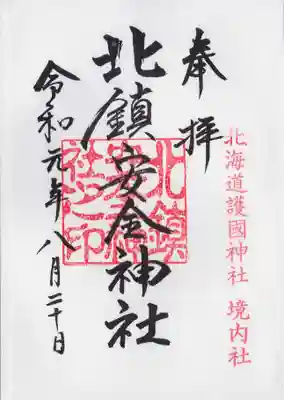 北海道護國神社 境内社
奉拝
北鎮安全神社
令和元年八月二十日
北鎮
社之印